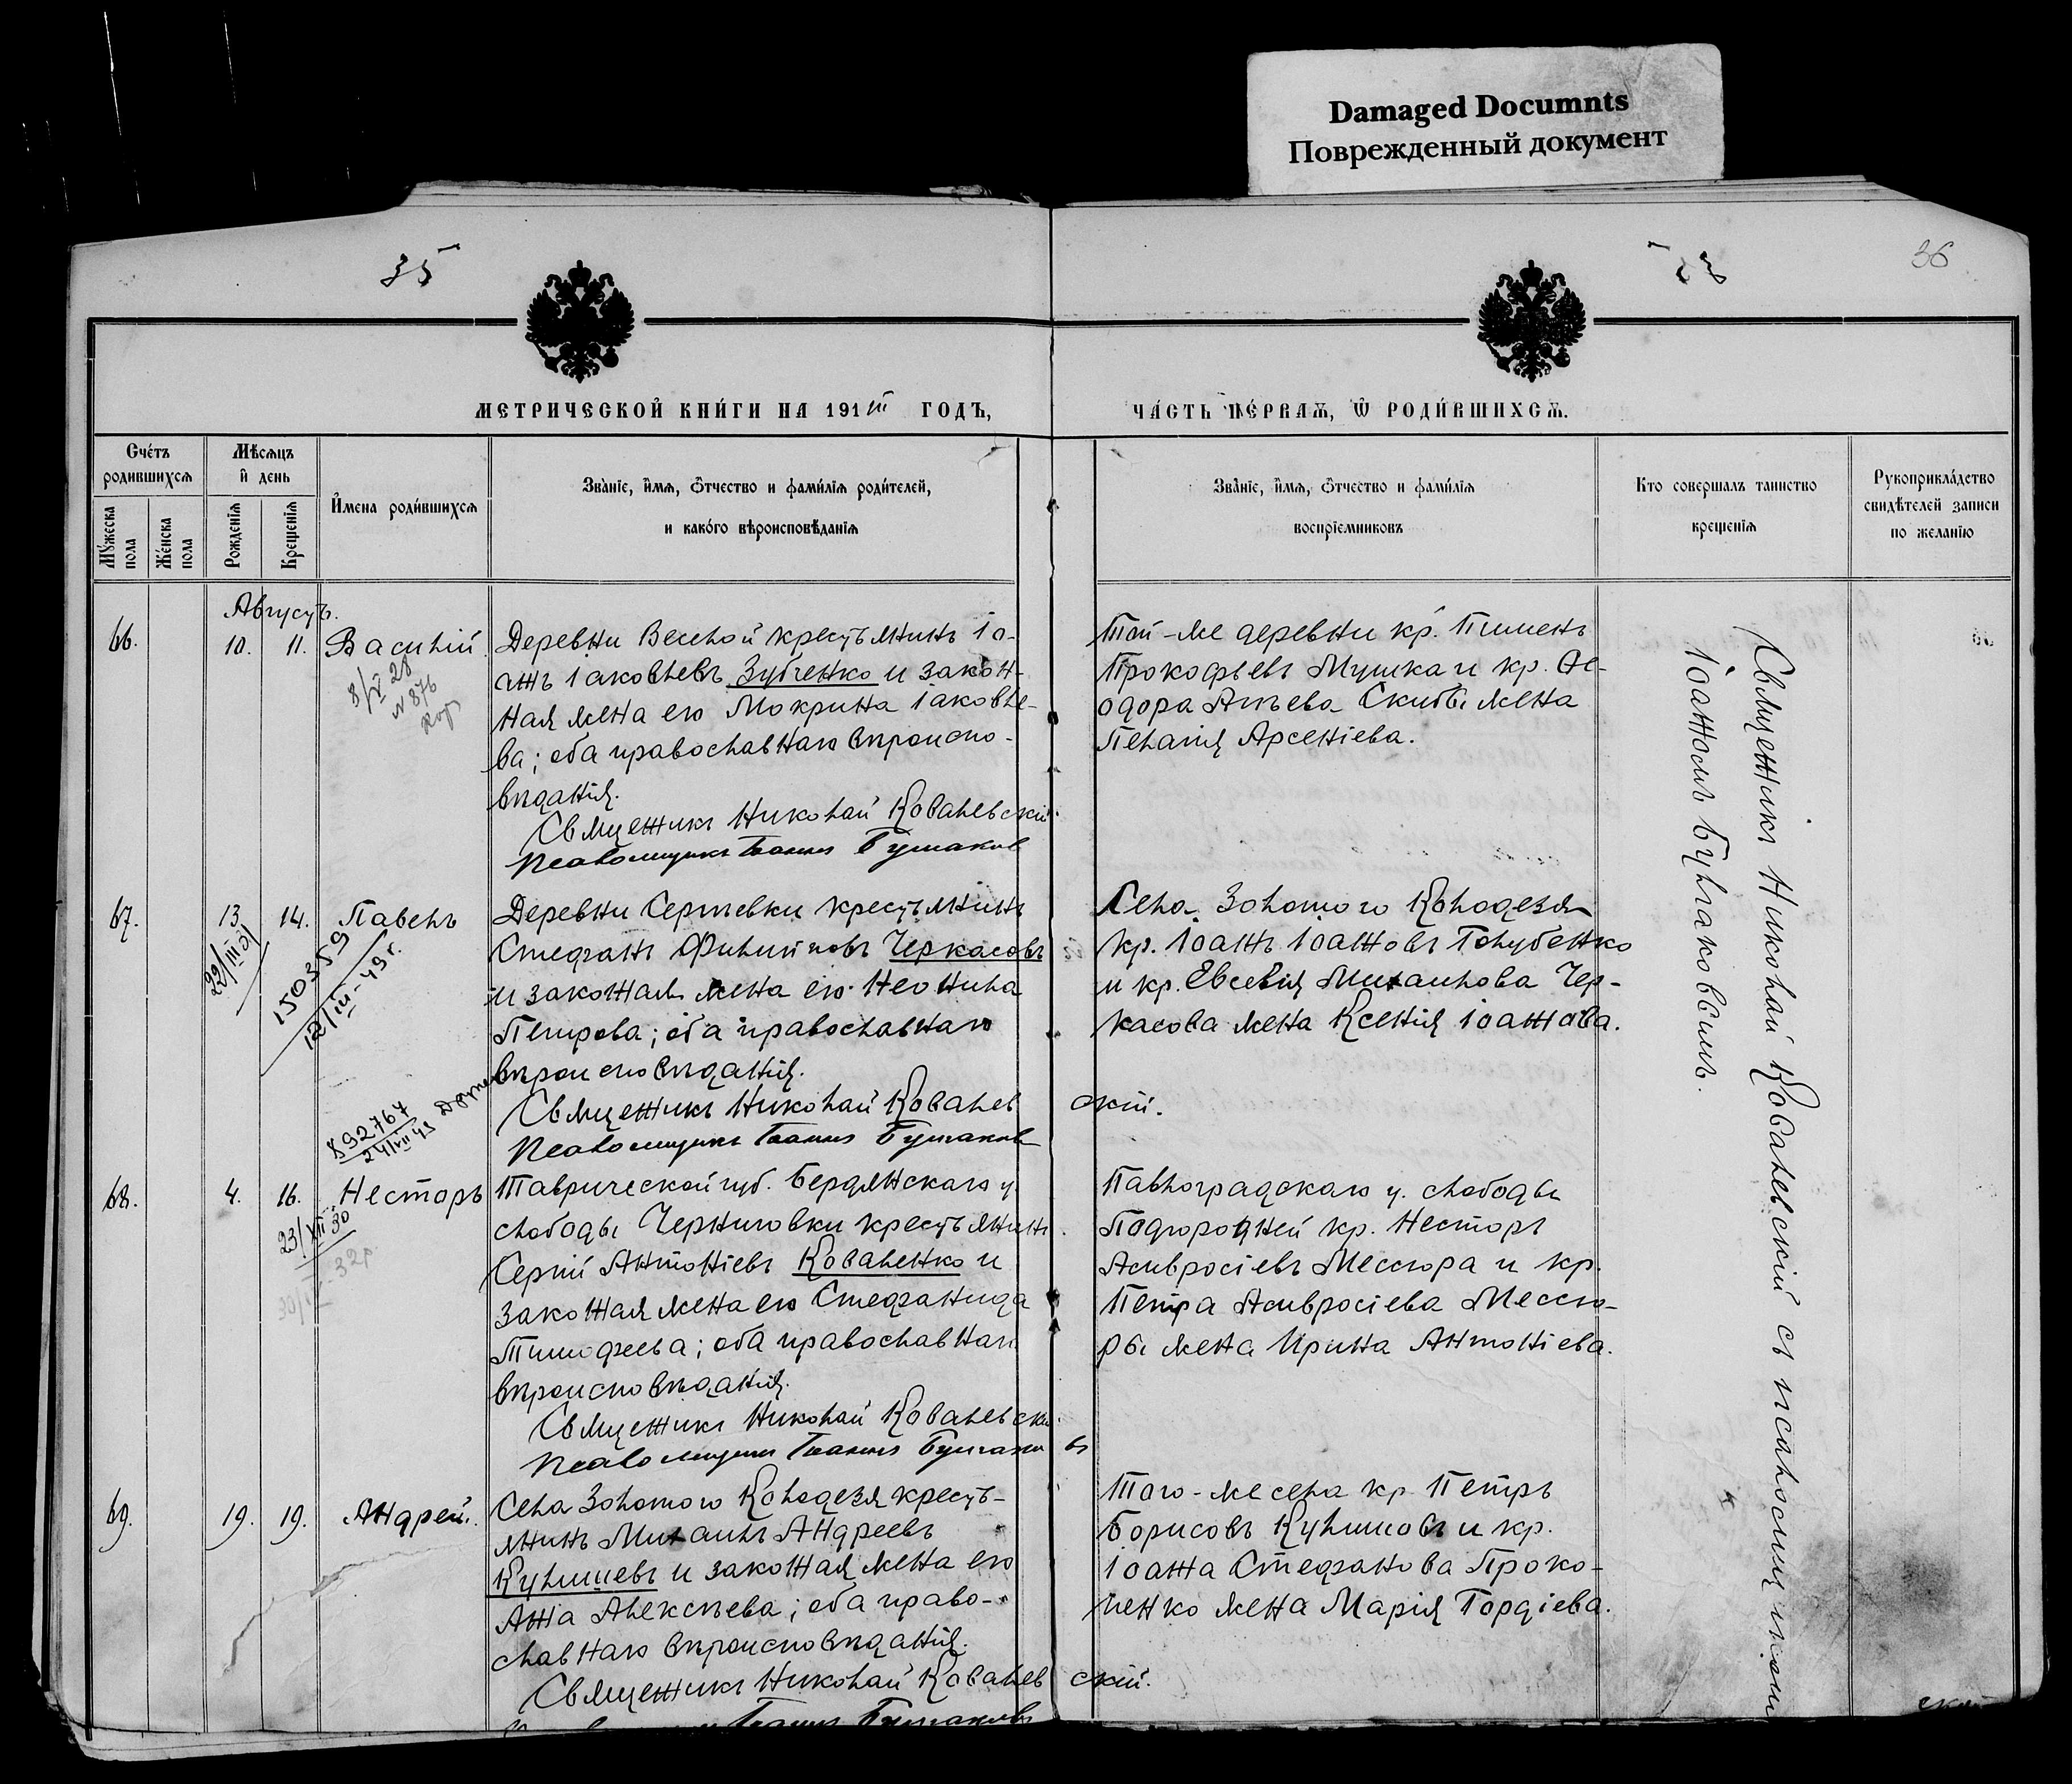 Damaged Documnts
Поврежденный документ
35
36
МЕТРИЧЕСКОЙ КНИ́ГИ НА 191III ГОДЪ,
ЧА́СТЬ ПЕ́РВАѦ, Ѡ РОДИ́ВШИХСѦ.
Сче́тъ
родившихсѧ
Му́жеска пола
Же́нска пола
Мѣсѧцъ
и҆ день
Рожденїѧ
Крещенїѧ
И҆мена роди́вшихсѧ
Зва́нїе, и҆мѧ, ѻ҆тчество и фами́лїѧ роди́телей,
и како́го вѣроисповѣ́данїѧ
Зва́нїе, и҆мѧ, ѻ҆тчество и фами́лїѧ
воспрїемниковъ
Кто совершалъ таинство
крещенїѧ
Рукоприкла́дство
свидѣтелей записи
по желанїю
Августъ.
66.
10.
11.
Василій
8/V 28
N 876
Деревни Веселой крестьянинъ Іо-
аннъ Іаковлевъ Зубченко и закон-
ная жена его Мокрина Іаковле-
ва; оба православнаго вѣроиспо-
вѣданія.
Священникъ Николай Ковалевскій.
Псаломщикъ Іоаннъ Булгаковъ
Той-же деревни кр. Пименъ
Прокофьевъ Мушка и кр. Ѳе-
одора Агѣева Скибы жена
Пелагія Арсеніева.
67.
13
14.
Павелъ
22/III 01
150359
12/III-49 г.
Деревни Сергѣевки крестьянинъ
Стефанъ Филипповъ Черкасовъ
и законная жена его Неонила
Петрова; оба православнаго
вѣроисповѣданія.
Священникъ Николай Ковалевскій.
Псаломщикъ Іоаннъ Булгаковъ
Села Золотого Колодезя
кр. Іоаннъ Іоанновъ Голубенко
и кр. Евсевія Михаилова Чер-
касова жена Ксенія Іоаннова.
892767
24/VII 49
68.
4.
16.
Несторъ
23/XII 30
32г
Таврической губ. Бердянскаго у.
слободы Черниговки крестьянинъ
Сергій Антоніевъ Коваленко и
законная жена его Стефанида
Тимофеева; оба православнаго
вѣроисповѣданія.
Священникъ Николай Ковалевскій.
Псаломщикъ Іоаннъ Булгаковъ
Павлоградскаго у. слободы
Подгородней кр. Несторъ
Амвросіевъ Мессюра и кр.
Петра Амвросіева Мессю-
ры жена Ирина Антоніева.
69.
19.
19.
Андрей.
Села Золотого Колодезя кресть-
янинъ Михаилъ Андреевъ
Кулишевъ и законная жена его
Анна Алексѣева; оба право-
славнаго вѣроисповѣданія.
Священникъ Николай Ковалевскій.
Іоаннъ Булгаковъ
Того-же села кр. Петръ
Борисовъ Кулишовъ и кр.
Іоанна Стефанова Проко-
пенко жена Марія Гордіева.
Священникъ Николай Ковалевскій съ псаломщикомъ
Іоанномъ Булгаковымъ.